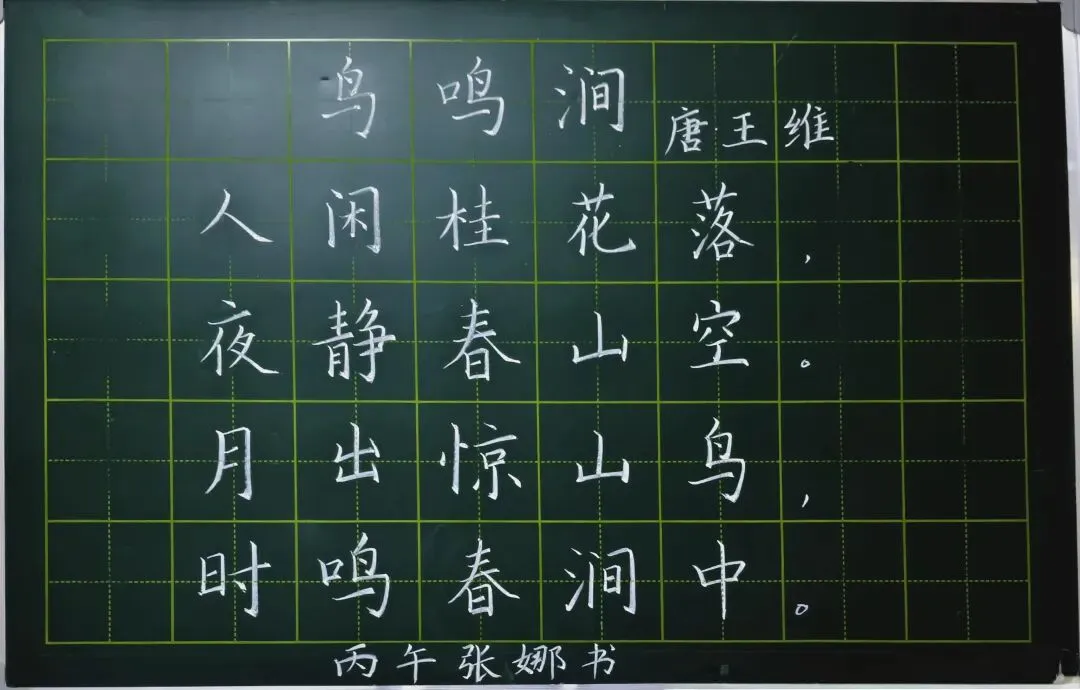 鸟鸣涧
唐·王维
人闲桂花落，
夜静春山空。
月出惊山鸟，
时鸣春涧中。
丙午张娜书